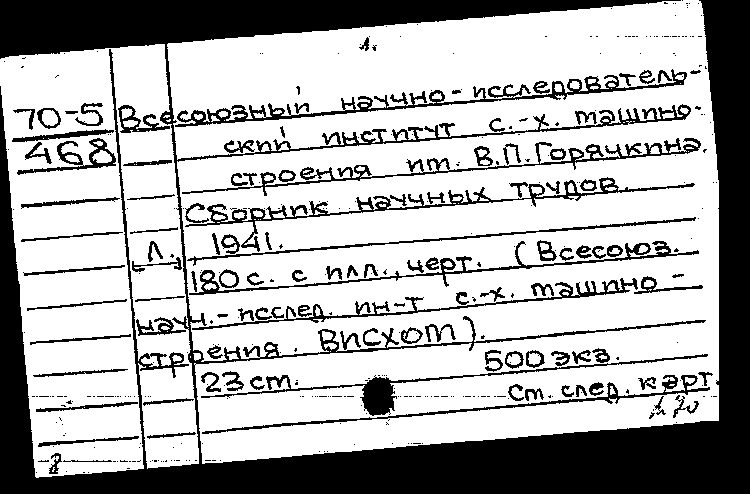 1.
70-5 Всесоюзный научно-исследователь-
468 ский институт с.-х. машино-
строения им. В.П.Горячкина.
Сборник научных трудов.
[Л.], 1941.
180 с. с илл., черт. (Всесоюз.
научн.-исслед. ин-т с.-х. машино-
строения. ВИСХОМ).
23 см. 500 экз.
См. след. карт.